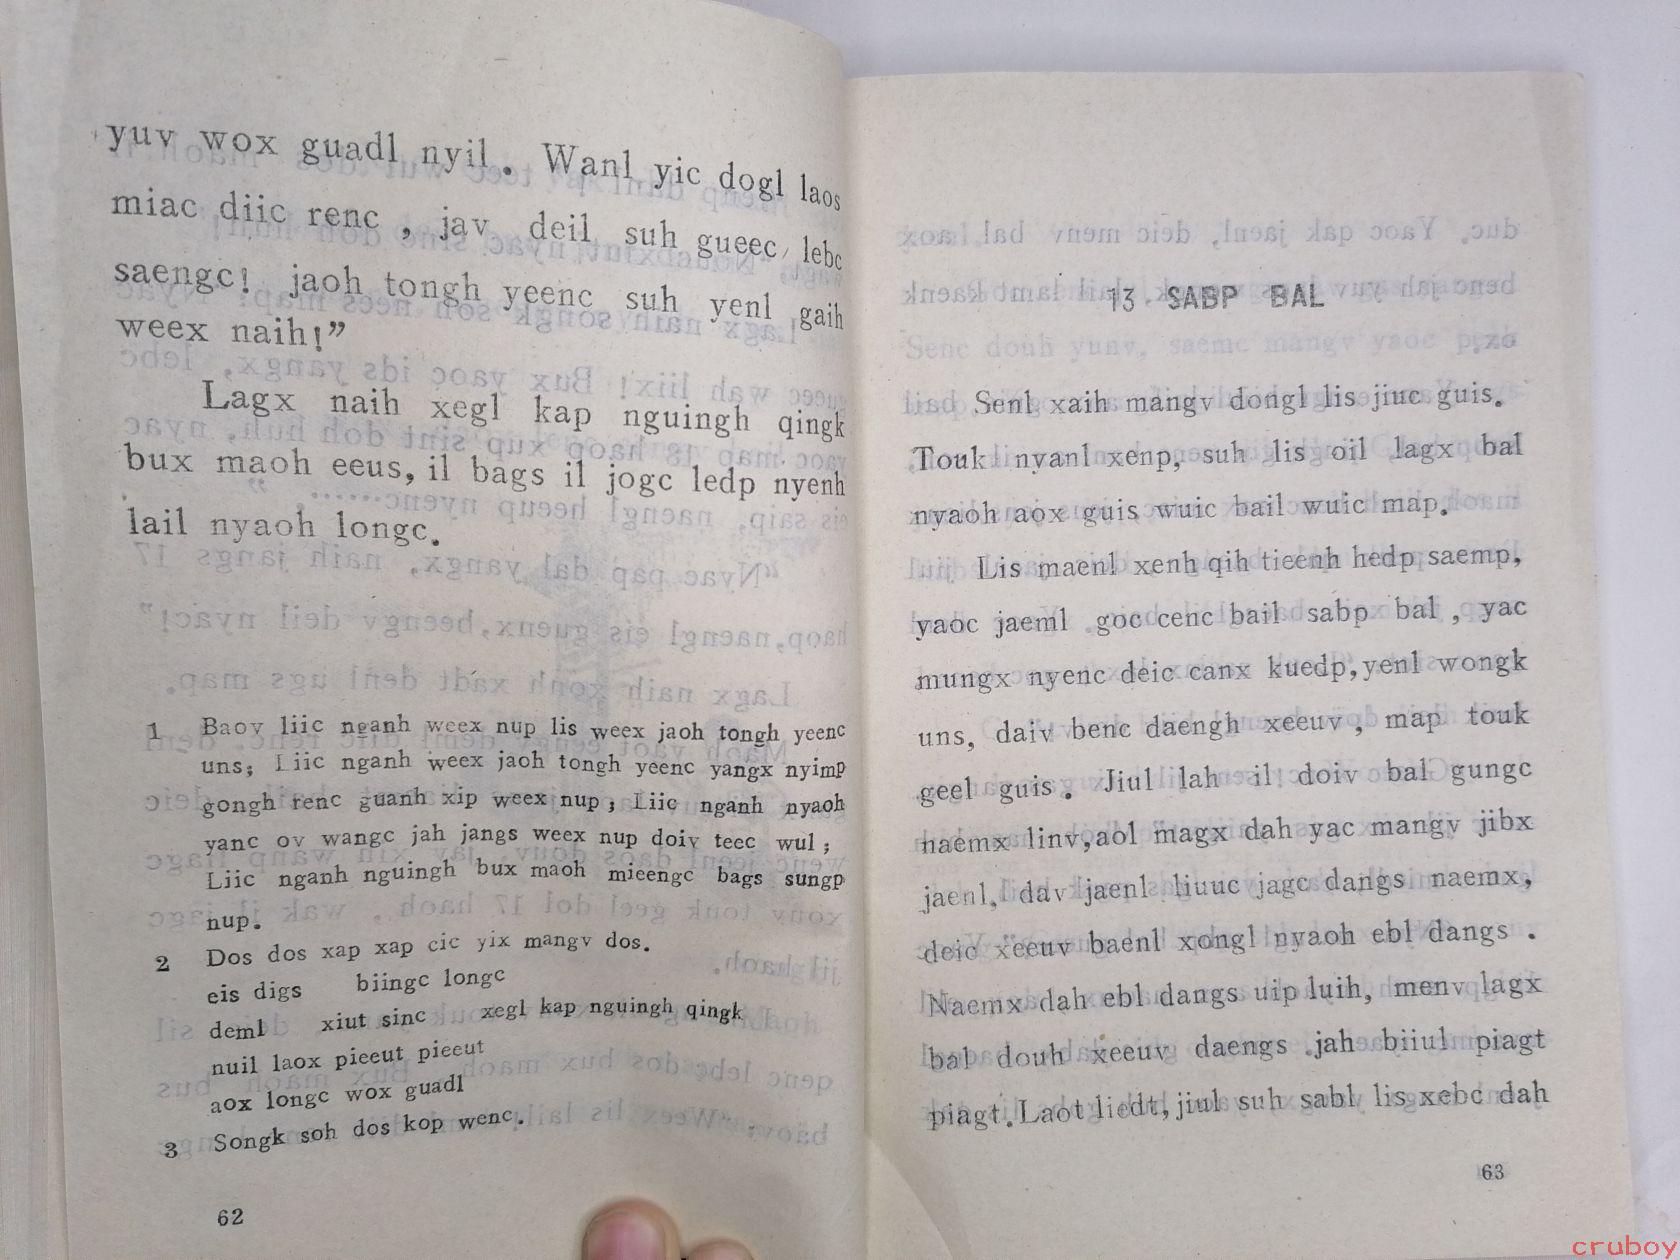 yuv wox guadl nyil. Wanl yic dogl laos
miac diic renc, jav deil suh gueec lebc
saengc! jaoh tongh yeenc suh yenl gaih
weex naih!”
Lagx naih xegl kap nguingh qingk
bux maoh eeus, il bags il jogc ledp nyenh
lail nyaoh longc.
1 Baov liic nganh weex nup lis weex jaoh tongh yeenc
uns; Liic nganh weex jaoh tongh yeenc yangx nyimp
gongh renc guanh xip weex nup; Liic nganh nyaoh
yanc ov wangc jah jangs weex nup doiv teec wul;
Liic nganh nguingh bux maoh mieengc bags sungp
nup.
2 Dos dos xap xap cic yix mangv dos.
eis digs biingc longc
deml xiut sinc xegl kap nguingh qingk
nuil laox pieeut pieeut
aox longc wox guadl
3 Songk soh dos kop wenc.
62
13. SABP BAL
Senl xaih mangv dongl lis jiuc guis.
Touk nyanl xenp, suh lis oil lagx bal
nyaoh aox guis wuic bail wuic map.
Lis maenl xenh qih tieenh hedp saemp,
yaoc jaeml goc cenc bail sabp bal, yac
mungx nyenc deic canx kuedp, yenl wongk
uns, daiv benc daengh xeeuv, map touk
geel guis. Jiul lah il doiv bal gungc
naemx linv, aol magx dah yac mangv jibx
jaenl, dav jaenl liuuc jagc dangs naemx,
deic xeeuv baenl xongl nyaoh ebl dangs.
Naemx dah ebl dangs uip luih, menv lagx
bal douh xeeuv daengs jah biiul piagt
piagt. Laot liedt, jiul suh sabl lis xebc dah
63
cruboy